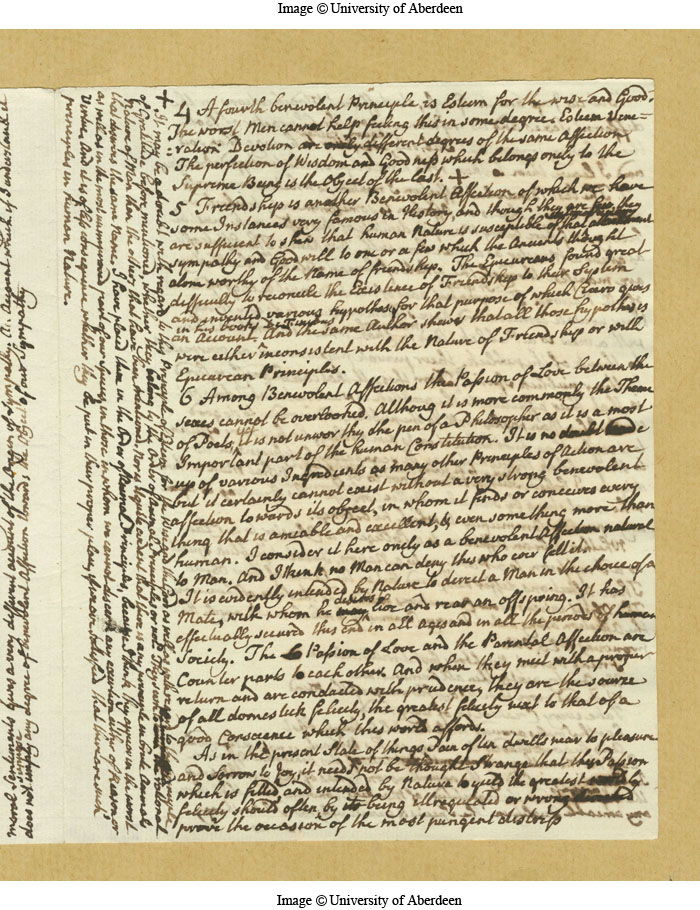 Image © University of Aberdeen
4 A fourth benevolent Principle is Esteem for the wise and Good.
The worst Men cannot help feeling this in some degree. Esteem Vene=
ration Devotion are different degrees of the same Affection
The perfection of Wisdom and Goodness which belongs onely to the
Supreme Being is the Object of the last. +
5 Friendship is another Benevolent Affection of which we have
some Instances very famous in History and though they are few they
are sufficient to shew that human Nature is susceptible of that
sympathy and Good will to one or a few which the Ancients thought
alone worthy of the Name of friendship. The Epicureans found great
difficulty to reconcile the Existence of Friendship to their System
and invented various hypotheses for that purpose of which Cicero gives
in his books
an Account. And the same Author shews that all those hypotheses
were either inconsistent with the Nature of Friendship or with
Epicurean Principles.
6 Among Benevolent Affections the Passion of Love between the
sexes cannot be overlooked. Althoug it is more commonly the Theme
of Poets, yet it is not unworthy the pen of a Philosopher as it is a most
Important part of the human Constitution. It is no doubt made
up of various Ingredients as many other Principles of Action are,
but it certainly cannot exist without a very strong benevolent
affection towards its object, in whom it finds or conceives every
thing that is amiable and excellent, & even something more than
human. I consider it here onely as a benevolent Affection natural
to Man. And I think no Man can deny this who ever felt it.
It is evidently intended by Nature to direct a Man in the choice of a
Mate, with whom he desires to live and rear an offspring. It has
effectually secured this end in all ages and in all the periods of human
Society. The Passion of Love and the Parental Affection are
Counter parts to each other. And when they meet with a proper
return and are conducted with prudence, they are the source
of all domestick felicity, the greatest felicity next to that of a
good Conscience which this world affords.
As in the present State of things Pain often dwells near to pleasure
and Sorrow to Joy, it need not be thought Strange that this Passion
which is fitted and intended by Nature to yield the greatest
felicity should often by its being illregulated or wrong directed
prove the occasion of the most pungent distress
+ It may be a doubt with regard to this Principle of Esteem for the Wise and the Good as well as with regard to that
of Gratitude before mentioned, whether they belong to the Order of Animal Principles, or ought rather to be
Nature of Man than the other that have been mentioned. Nor is it quite evident that there is any thing in brute Animals
that deserves the same Name. I have placed them in the Order of Animal Principles, because I think they appear in the worst
as well as in the most unimproved part of our species, in those in whom we cannot discern any exertion either of Reason or
Virtue. And it is of less consequence whether they be put in their proper place, if we are satisfyed that there are such
principles in human Nature.
moral Sentiments gives a very different account of the Origin of sympathy, An Account which if I understand it
does not imply any degree of benevolent Affection towards the Object of our Sympathy
Image © University of Aberdeen